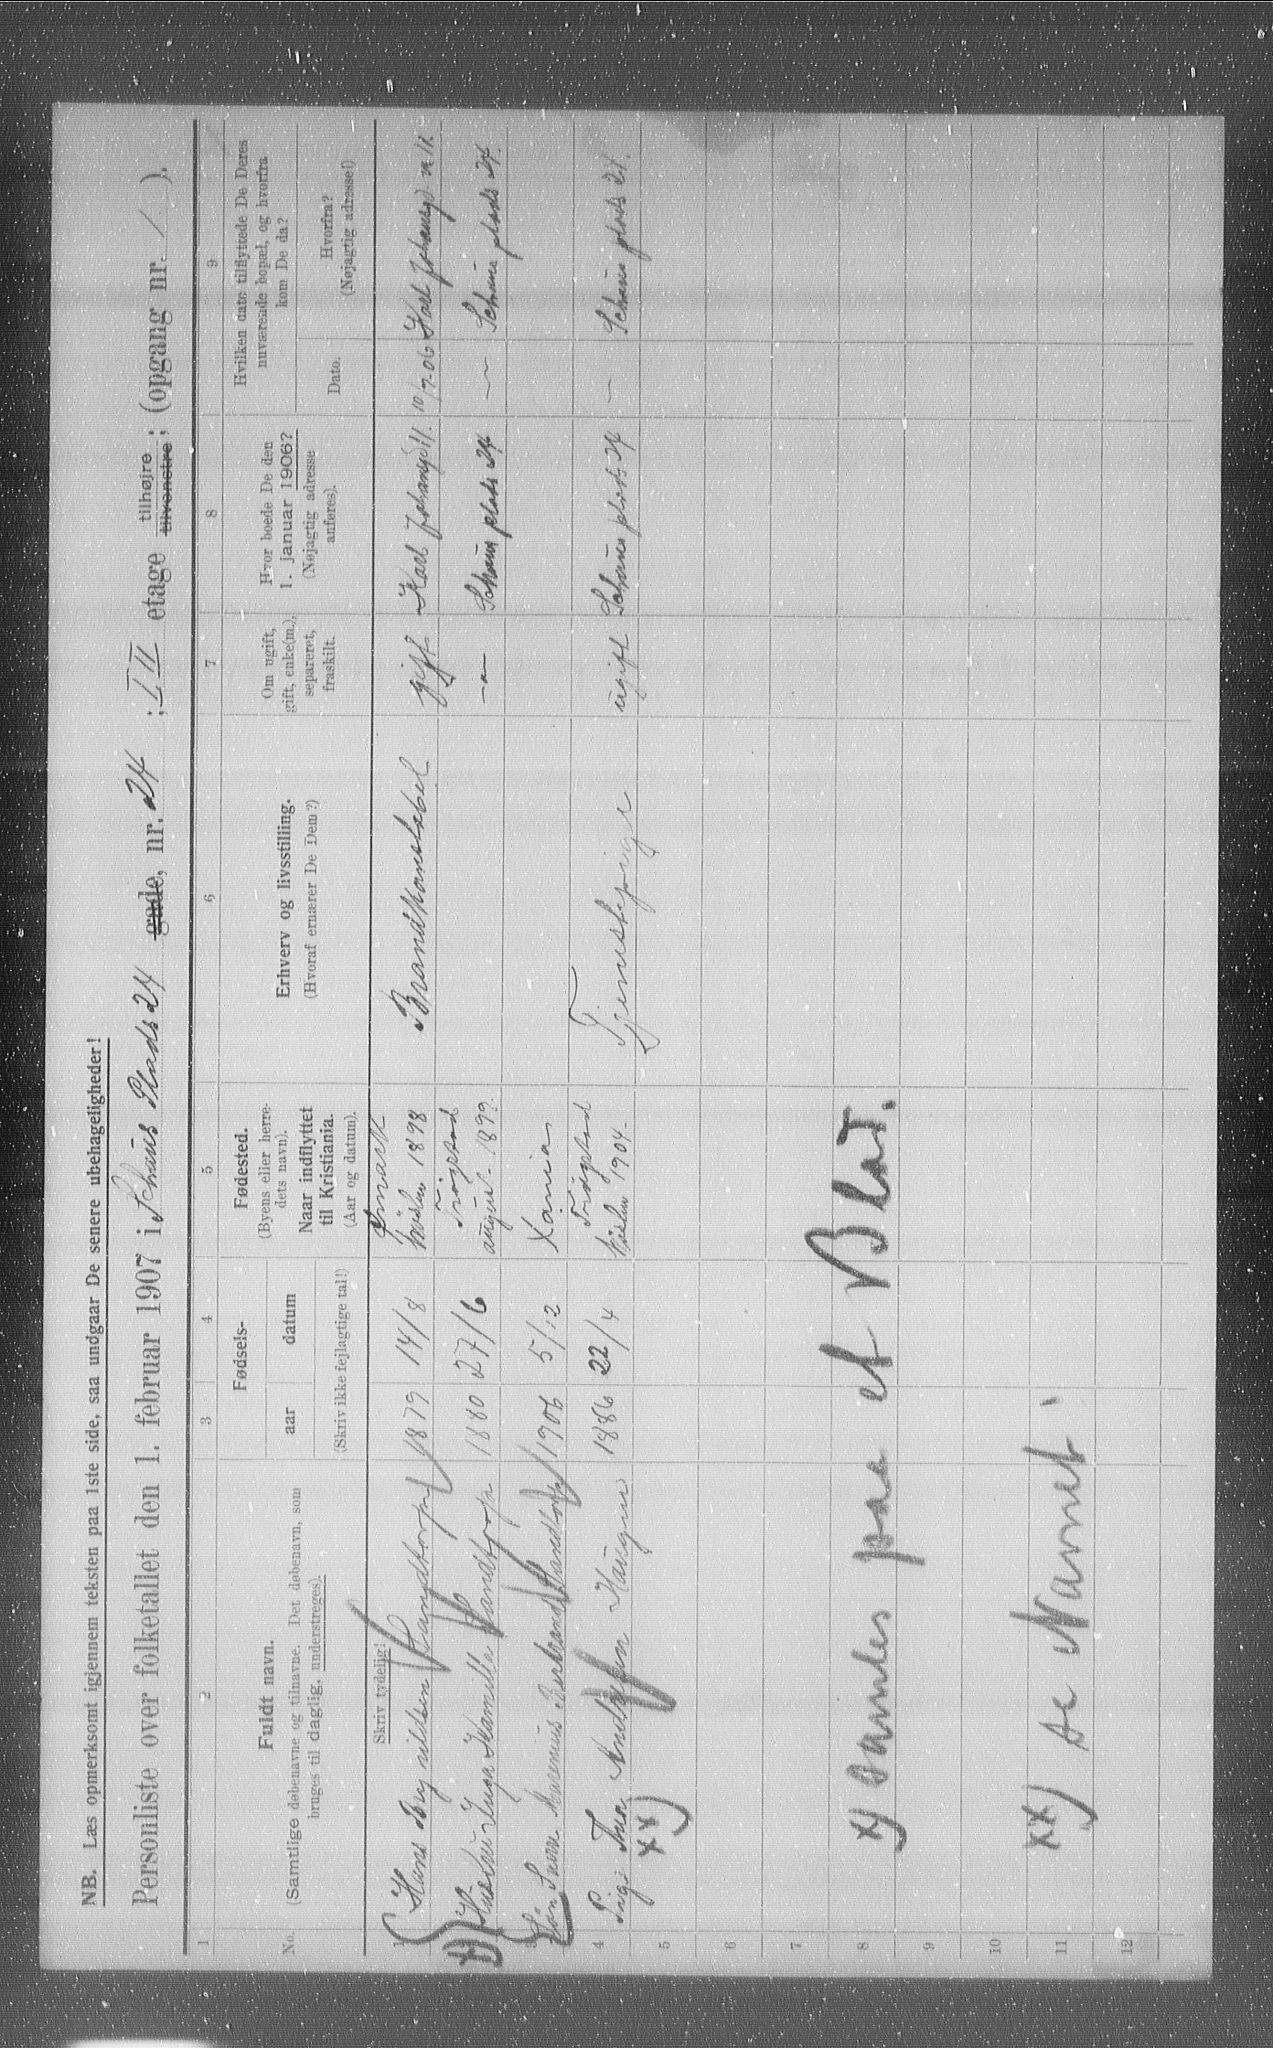 NB. Læs opmerksomt igjennem teksten paa 1ste side, saa undgaar De senere ubehageligheder!
Personliste over folketallet den 1. februar 1907 i Schous Plads 24 gade, nr. 24 ; III etage tilhøjre tilvenstre; (opgang nr. / ).
1 2 3 4 5 6 7 8 9
No.
Fuldt navn.
(Samtlige døbenavne og tilnavne. Det døbenavn, som
bruges til daglig, understreges).
Skriv tydelig!
Fødsels-
aar datum
(Skriv ikke fejlagtige tal!)
Fødested.
(Byens eller herre-
dets navn).
Naar indflyttet
til Kristiania.
(Aar og datum).
Erhverv og livsstilling.
(Hvoraf ernærer De Dem?)
Om ugift,
gift, enke(m.),
separeret,
fraskilt.
Hvor boede De den
1. januar 1906?
(Nøjagtig adresse
anføres).
Hvilken date tilflyttede De Deres
nuværende bopæl, og hvorfra
kom De da?
Dato.
Hvorfra?
(Nøjagtig adresse!)
1 Hans 1879 14/8 1898 Brandkonstabel gift Karl Johansgd 11. 10/7-06 Karl Johansgd n 11.
2 Hustru Inga Kamilla 1880 27/6 Trøgstad august 1899. — Schous plads 24 — Schous plads 24.
3 Søn 1906 5/12 Xania
4 Pige Thea 1886 22/4 Trøgstad 1904. Tjenestepige ugift Schous plads 24 — Schous plads 24.
5 xx)
6
7
8 x) Samles paa et Blad.
9
10
11 xx) se Navnet.
12